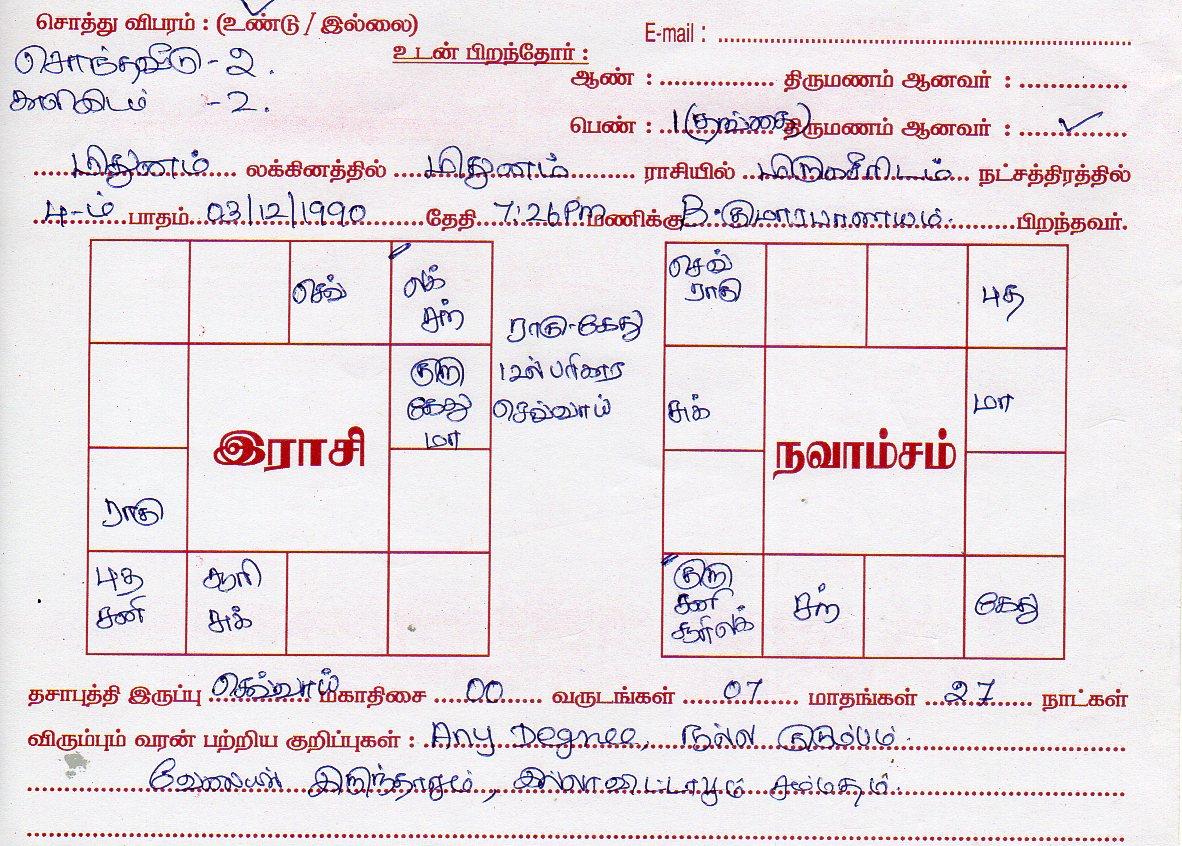 சொத்து விபரம் : (உண்டு / இல்லை)
E-mail :
சொந்தவீடு - 2.
உடன் பிறந்தோர் :
ஆண் : திருமணம் ஆனவர் :
காலிஇடம் - 2.
பெண் : 1 (தங்கை) திருமணம் ஆனவர் : ✓
மிதுனம் லக்கினத்தில் மிதுனம் ராசியில் மிருகசீரிடம் நட்சத்திரத்தில்
4-ம் பாதம் 03/12/1990 தேதி 7:26 Pm மணிக்கு B.குமாரபாளையம். பிறந்தவர்.
செவ்
லக்
சந்
குரு
கேது
மா
இராசி
ராகு
புத
சனி
சூரி
சுக்
ராகு-கேது
12ல் பரிகார
செவ்வாய்
செவ்
ராகு
புத
சுக்
மா
நவாம்சம்
குரு
சனி
சூரி லக்
சந்
கேது
தசாபுத்தி இருப்பு செவ்வாய் மகாதிசை 00 வருடங்கள் 07 மாதங்கள் 27 நாட்கள்
விரும்பும் வரன் பற்றிய குறிப்புகள் : Any Degree, நல்ல குடும்பம்.
வேலையில் இருந்தாலும், இல்லாவிட்டாலும் சம்மதம்.